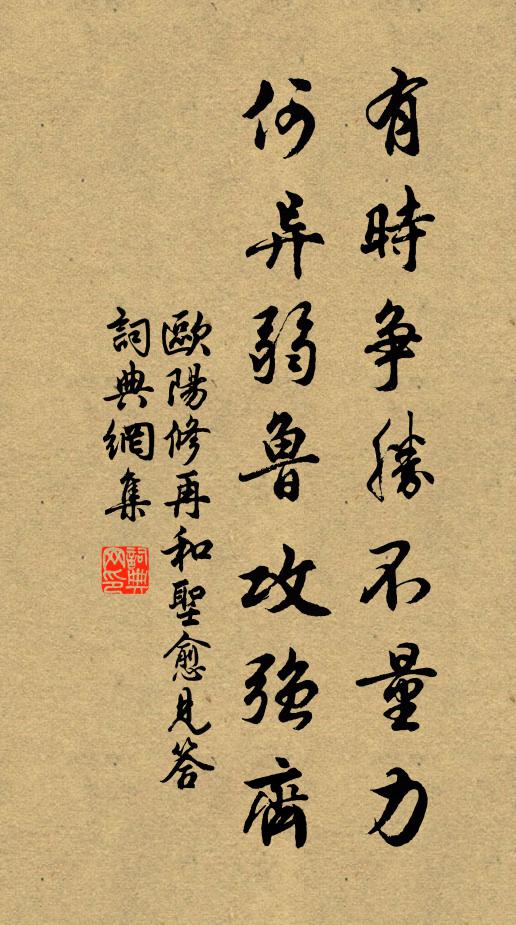 有時争勝不量力
何异弱魯攻強齊
歐陽修再和聖愈見答
詞典網集
詞典网印